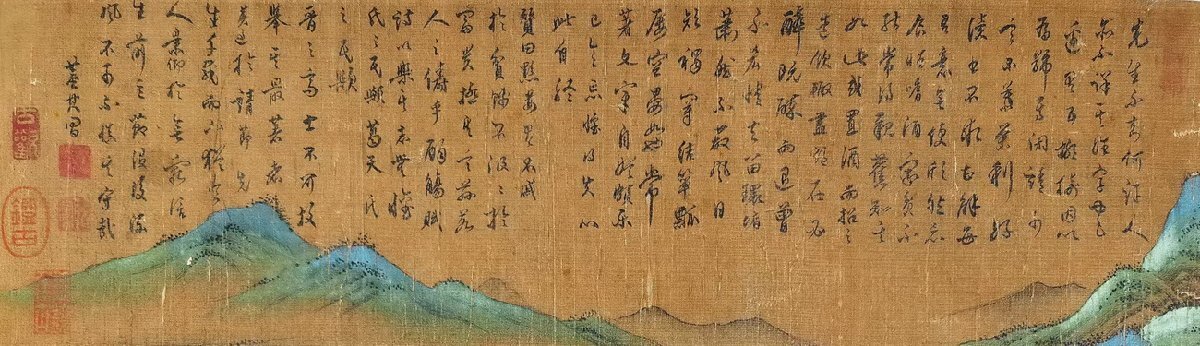 先生不知何許人
亦不詳其姓字宅
邊有五柳樹因以
為號焉閑靖少
言不慕榮利好
讀書不求甚解每
有意會便欣然忘
食性嗜酒家貧不
能常得親舊知其
如此或置酒而招之
造飲輒盡期在必
醉既醉而退曾
不吝情去留環堵
蕭然不蔽風日
短褐穿結簞瓢
屢空晏如也常
著文章自娛頗示
己志忘懷得失以
此自終
贊曰黔婁有言不戚
於貧賤不汲汲於
富貴極其言茲若
人之儔乎酣觴賦
詩以樂其志無懷
氏之民歟葛天氏
之民歟
晉之高士不可枚
舉其最著者
莫過於靖節先
生千載而下猶令
人景仰於無窮
生前
風不可不慎其守哉
董其昌